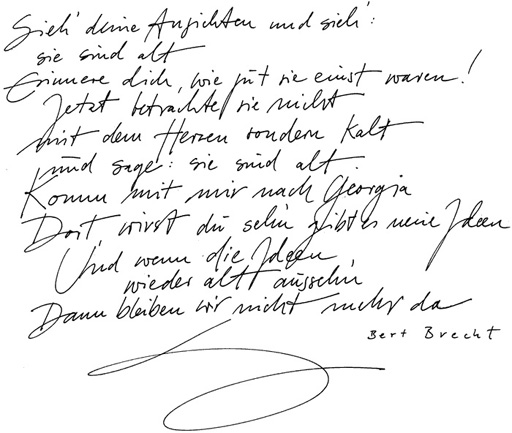 Sieh' deine Ansichten und sieh':
sie sind alt
Erinnere dich, wie gut sie einst waren!
Jetzt betrachte sie nicht
mit dem Herzen sondern kalt
und sage: sie sind alt.
Komm mit mir nach Georgia
Dort wirst du sehn gibt es neue Ideen
Und wenn die Ideen
wieder alt aussehn
Dann bleiben wir nicht mehr da
Bert Brecht